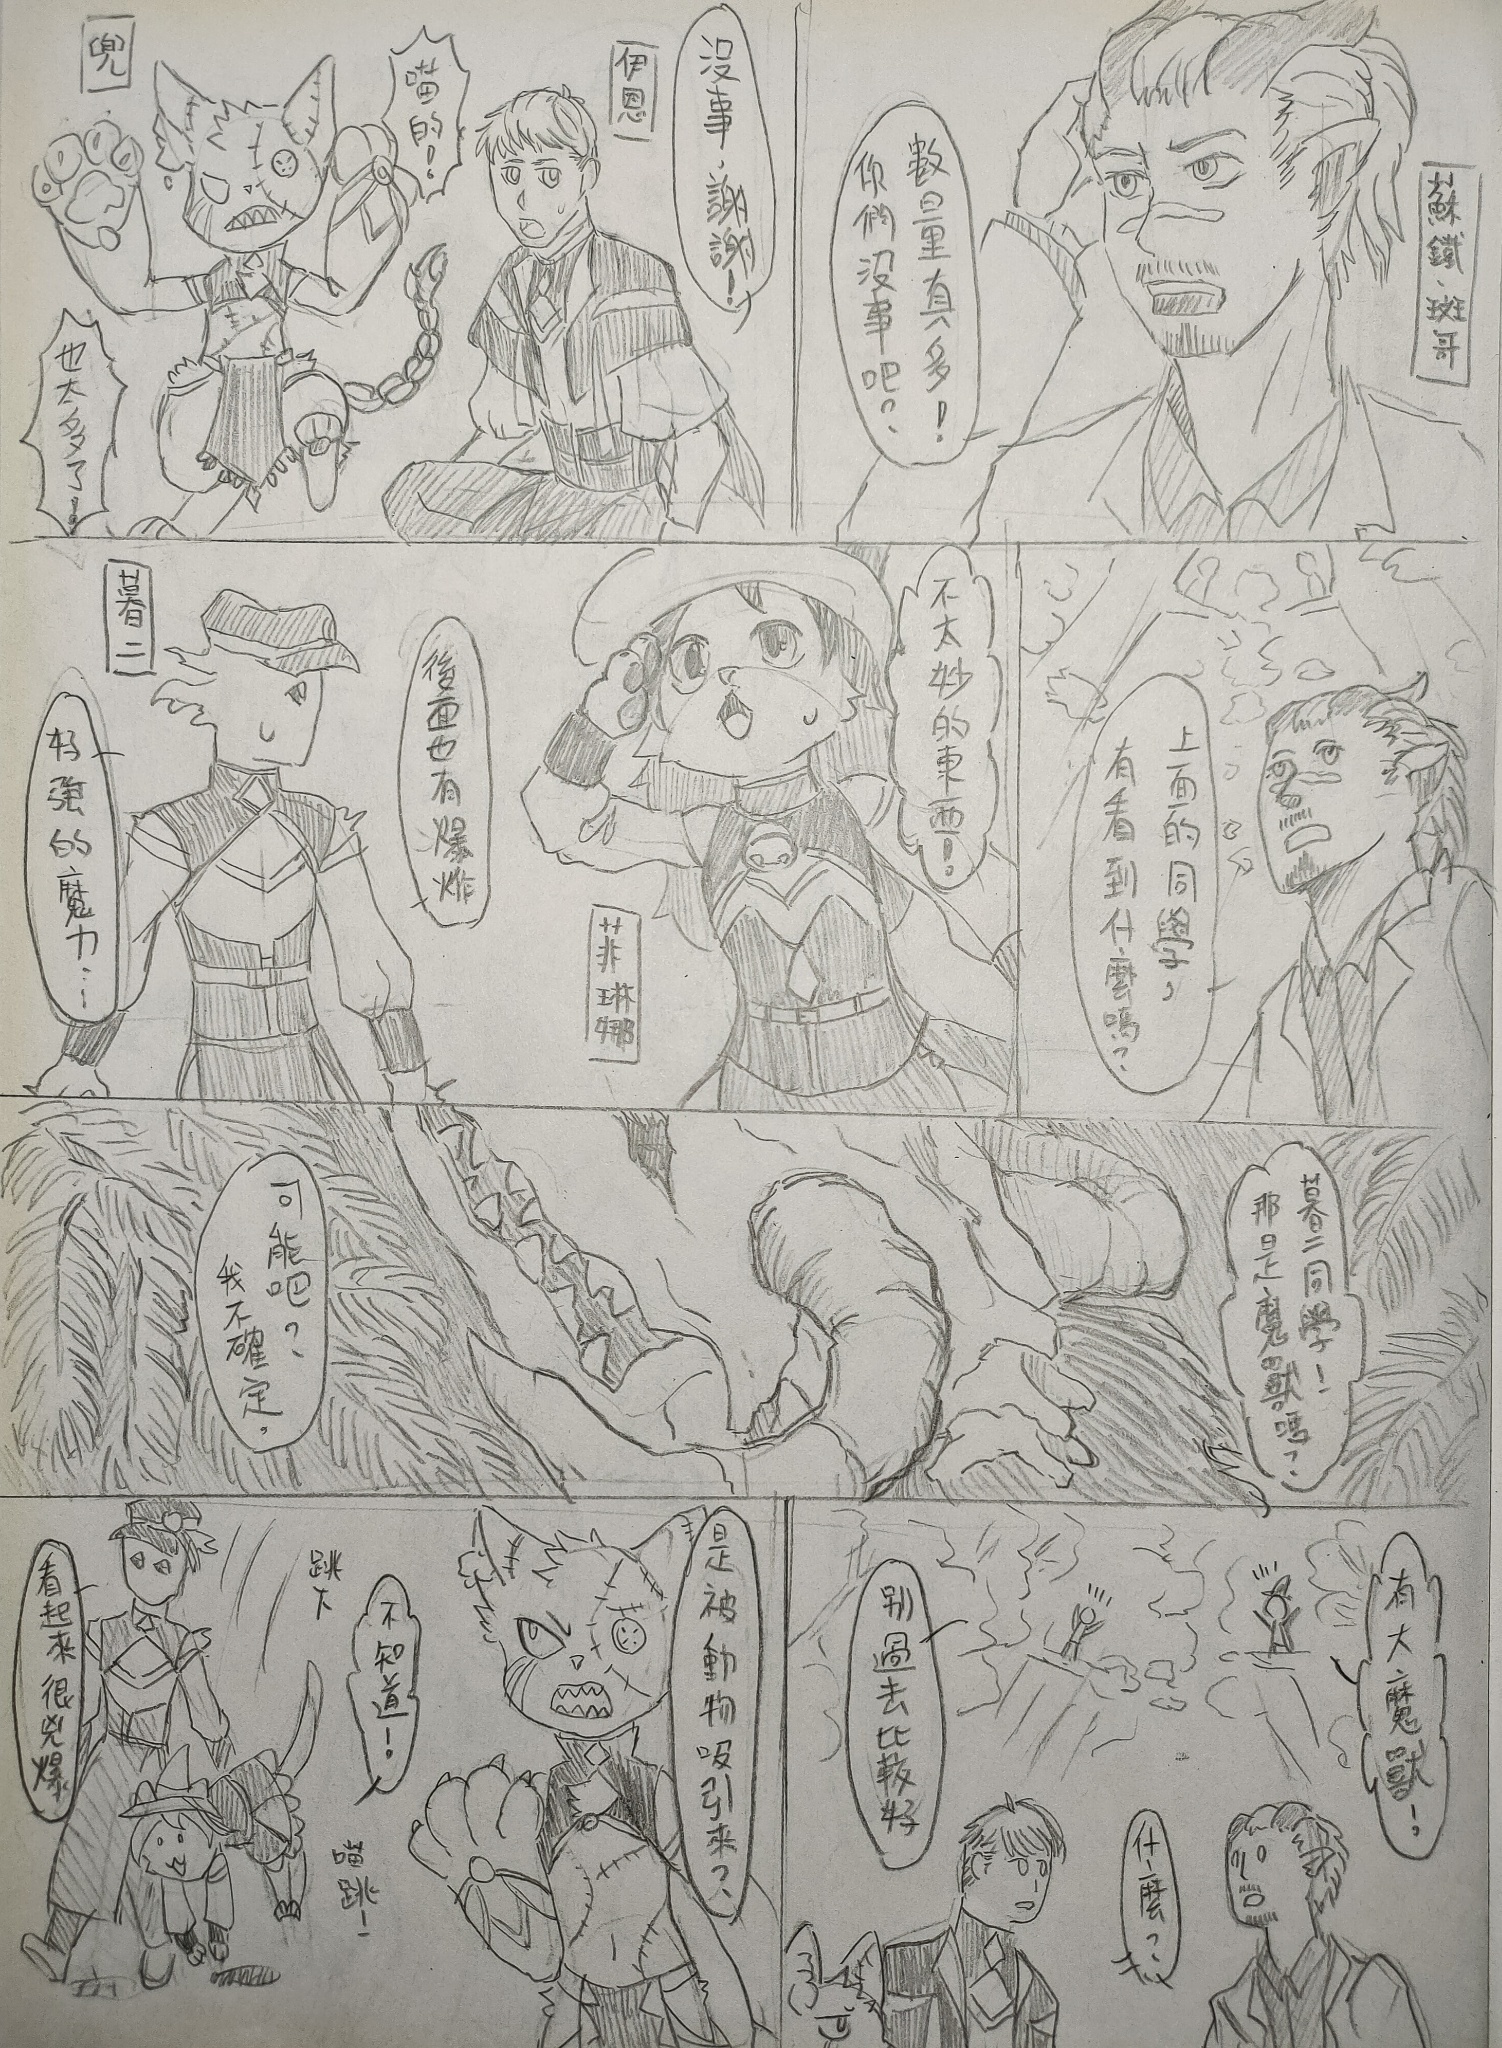 蘇鐵、斑哥
數量真多!
你們沒事吧?
沒事、謝謝!
伊恩
喵的!
兜
也太多了!
上面的同學,
有看到什麼嗎?
不太妙的東西!
菲琳娜
後面也有爆炸
暮二
好強的魔力…
暮二同學!
那是魔獸嗎?
可能吧?
我不確定,
有大魔獸!
什麼?
別過去比較好
是被動物吸引來?
不知道!
跳下
喵跳!
看起來很兇爆